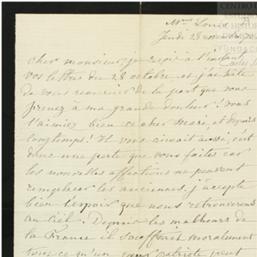 Mon
Jeudi 28 novembre
Cher monsieur, je reçois à l'instant
vos lettres du 28 octobre et j'ai hâte
de vous remercier de la part que vous
prenez à ma grande douleur! Vous
l'aimiez bien ce cher Mari, et depuis
longtemps! Il vous aimait aussi, c'est
donc une perte que vous faites car
les nouvelles affections ne peuvent
remplacer les anciennes, j'accepte
bien l'espoir que nous retrouverons
au Ciel. Depuis les malheurs de
la France il souffrait moralement
tout ce qu'un patriote peut